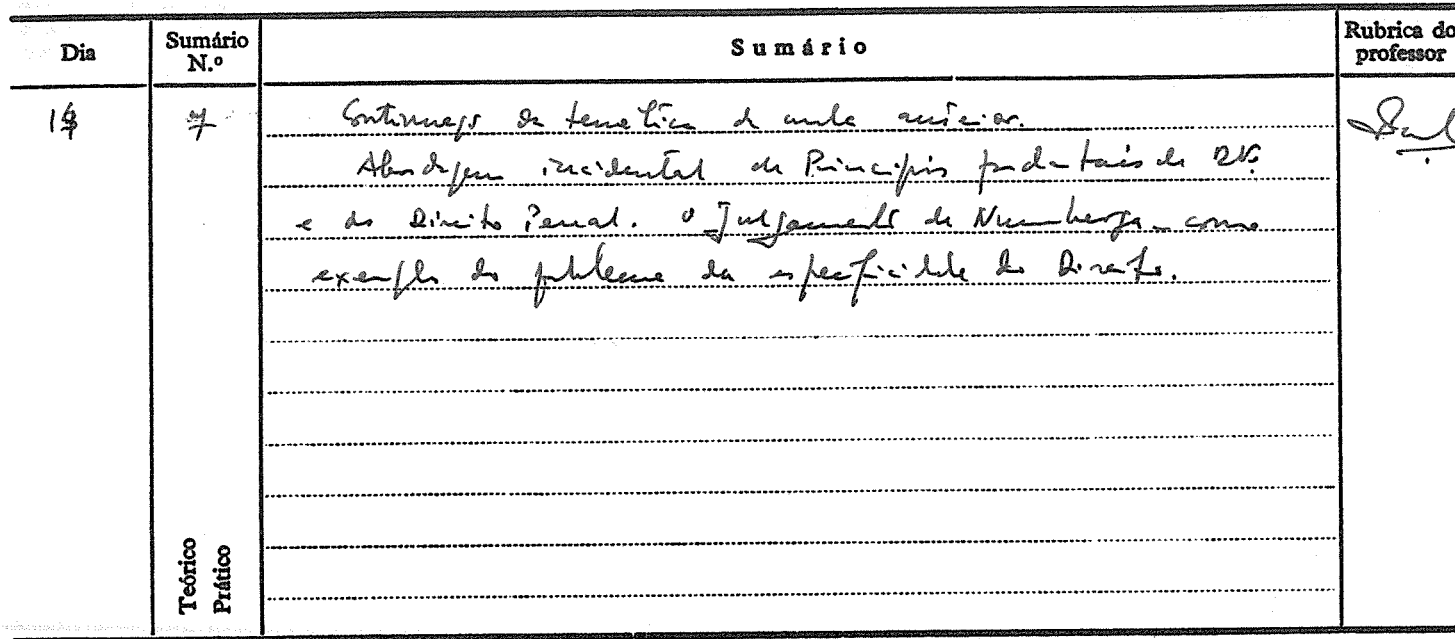 Dia Sumário N.º Sumário Rubrica do professor
7 Continuação da temática da aula anterior.
Abordagem incidental de Princípios fundamentais de
e do Direito Penal. O Julgamento de Nuremberga como
exemplo do problema da especificidade do Direito.
Teórico
Prático